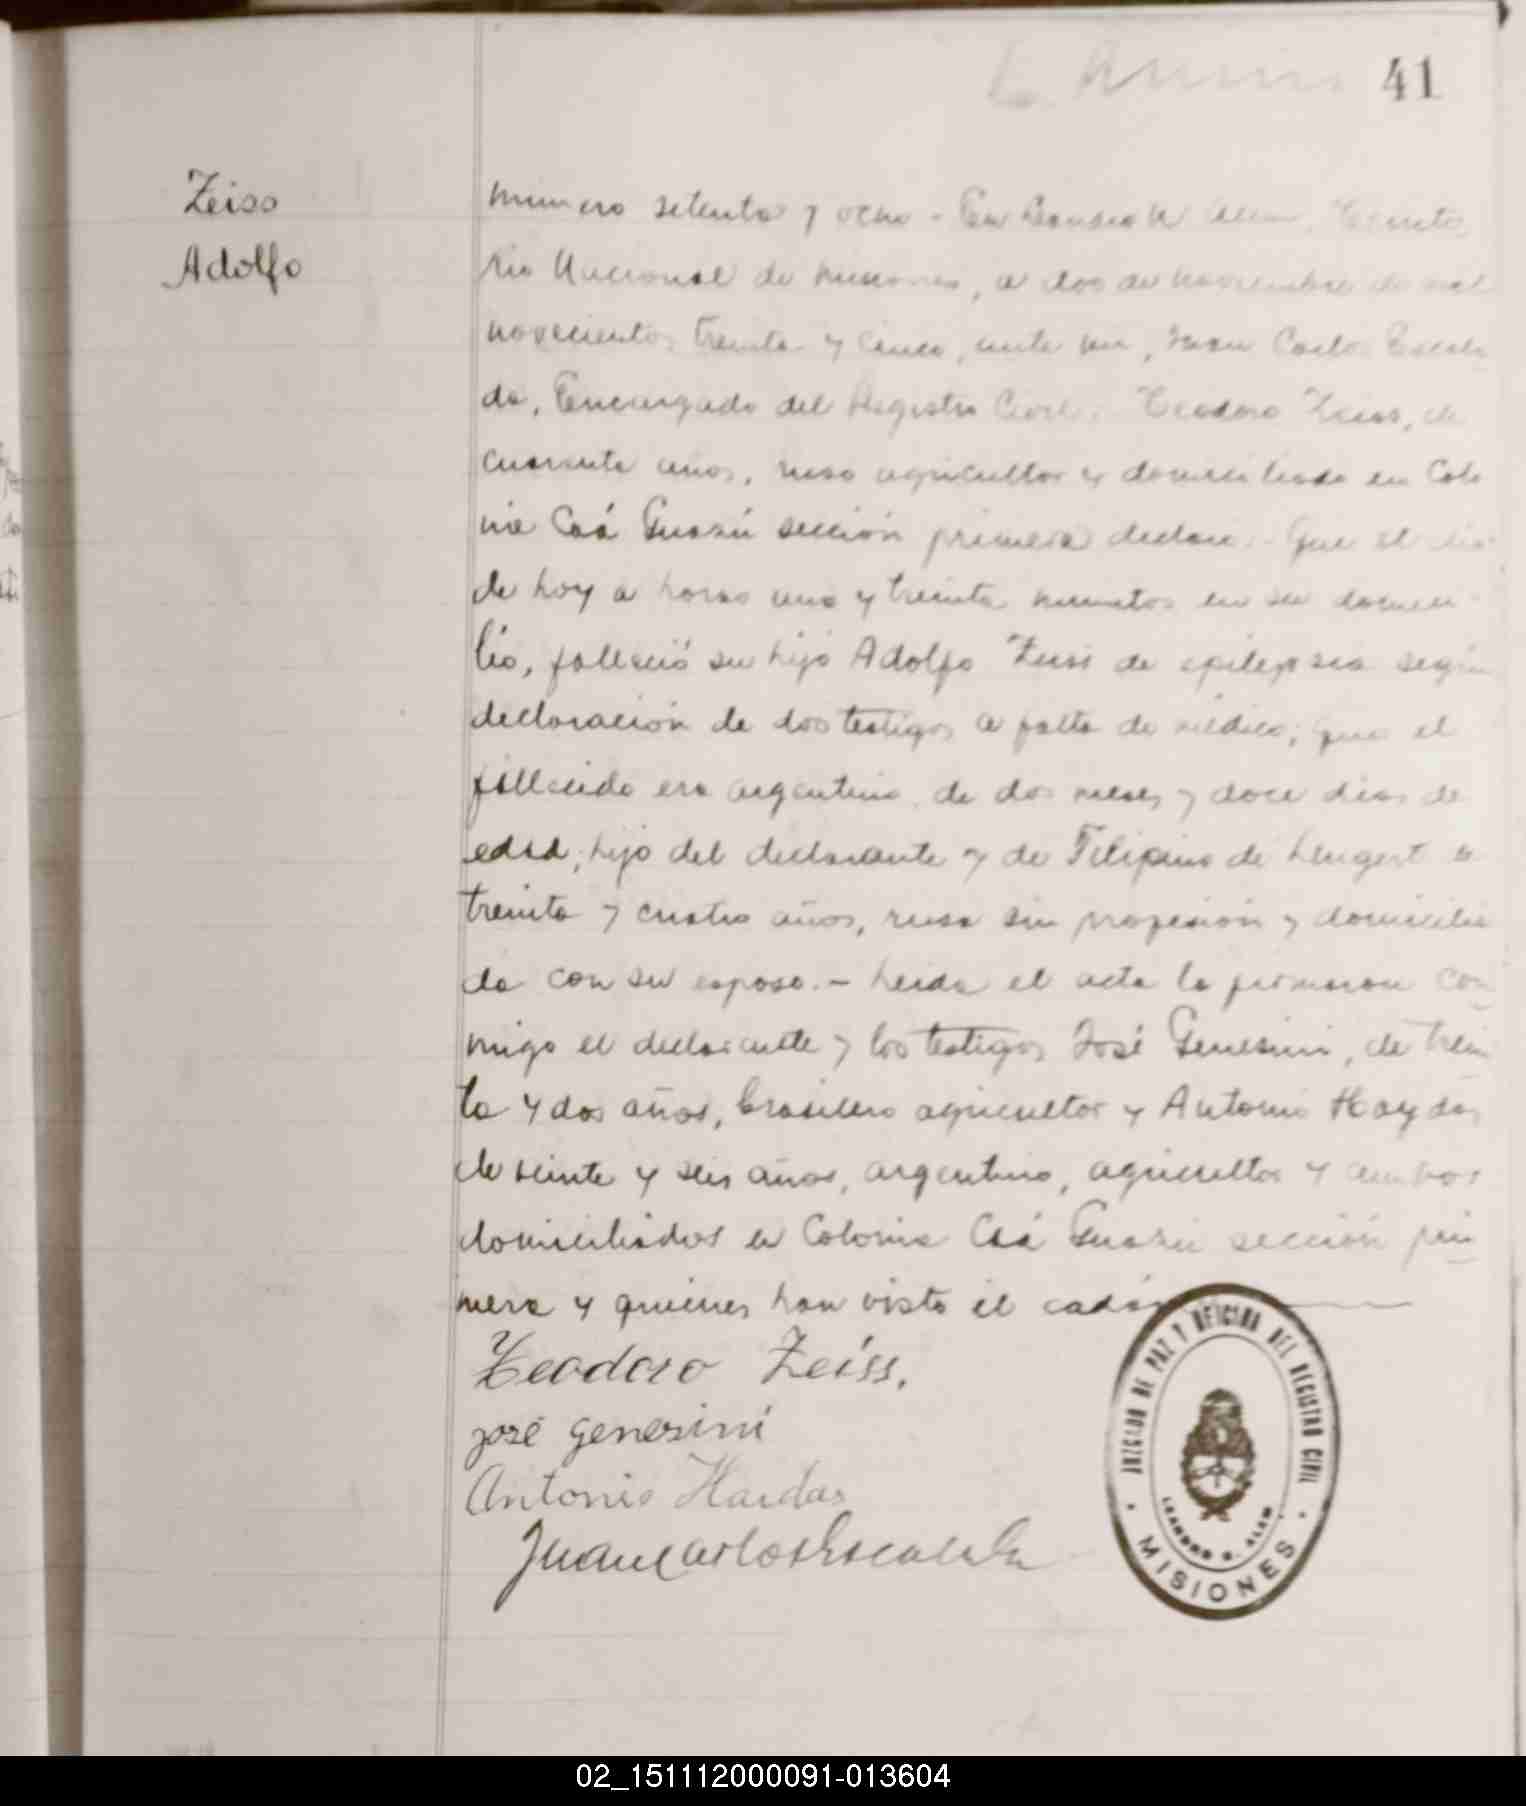 41
Zeiss
Adolfo
Número setenta y ocho - En Leandro N. Alem, Territo
rio Nacional de Misiones, a dos de noviembre de mil
novecientos treinta y cinco, ante mi, Juan Carlos Escala
da, Encargado del Registro Civil, Teodoro Zeiss, de
cuarenta años, ruso agricultor y domiciliado en Colo
nia Caá Guazú sección primera declaro: Que el día
de hoy a horas una y treinta minutos en su domici-
lio, falleció su hijo Adolfo Zeiss de epilepsia según
declaración de dos testigos a falta de médico; que el
fallecido era argentino, de dos meses y doce dias de
edad; hijo del declarante y de Filipina de Lengert de
treinta y cuatro años, rusa sin profesión y domicilia
da con su esposo. - Leida el acta la firmaron con
migo el declarante y los testigos José Genesini, de trein
ta y dos años, brasilero agricultor y Antonio Haydas,
de veinte y seis años, argentino, agricultor y ambos
domiciliados en Colonia Caá Guazú sección pri
mera y quienes han visto el cadáver
Teodoro Zeiss.
José Genesini
Antonio Hardas
Juan Carlos Escalada
JUZGADO DE PAZ Y OFICINA DEL REGISTRO CIVIL
LEANDRO N. ALEM
MISIONES
02_151112000091-013604